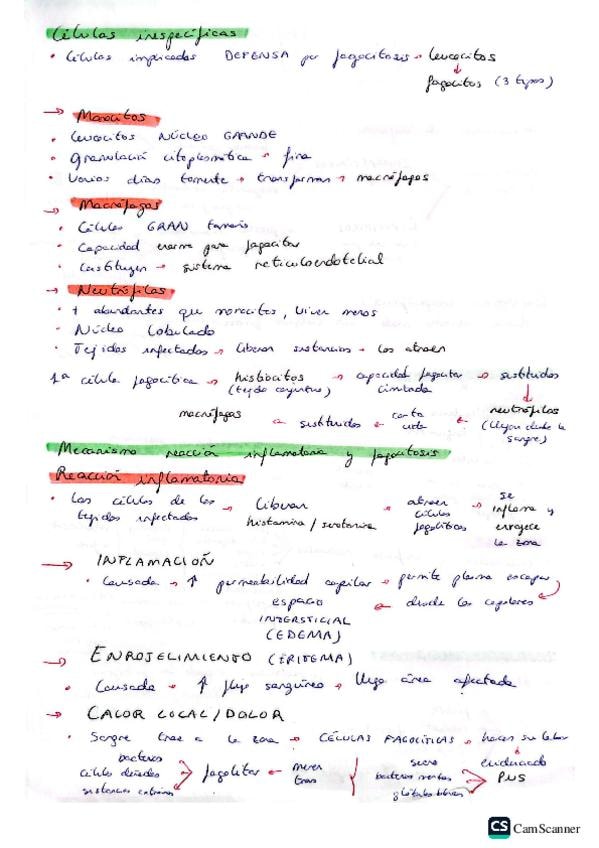 Células inespecíficas
• Células implicadas DEFENSA por fagocitosis → leucocitos
↓
fagocitos (3 tipos)
→ Monocitos
• Leucocitos NÚCLEO GRANDE
• Granulación citoplasmática → fina
• Varios días torrente → transforman → macrófagos
→ Macrófagos
• Células GRAN tamaño
• Capacidad enorme para fagocitar
• Constituyen → sistema reticuloendotelial
→ Neutrófilos
• + abundantes que monocitos, viven menos
• Núcleo Lobulado
• Tejidos infectados → liberan sustancias → los atraen
1ª célula fagocítica → histiocitos (tejido conjuntivo) → capacidad fagocitar limitada → sustituidos
↓
macrófagos ← sustituidos ← corta vida ← neutrófilos (llegan desde la sangre)
Mecanismo reacción inflamatoria y fagocitosis
Reacción inflamatoria
• Las células de los tejidos infectados → liberan histamina / serotonina → atraen células fagocíticas → se inflama y enrojece la zona
→ INFLAMACIÓN
• Causada → ↑ permeabilidad capilar → permite plasma escapar
espacio INTERSTICIAL (EDEMA) ← desde los capilares
→ ENROJECIMIENTO (ERITEMA)
• Causada → ↑ flujo sanguíneo → llega área afectada
→ CALOR LOCAL/DOLOR
• Sangre trae a la zona → CÉLULAS FAGOCÍTICAS → hacen su labor
bacterias
células dañadas
sustancias extrañas
fagocitar ←
suero
bacterias muertas
glóbulos blancos
PUS
CS CamScanner